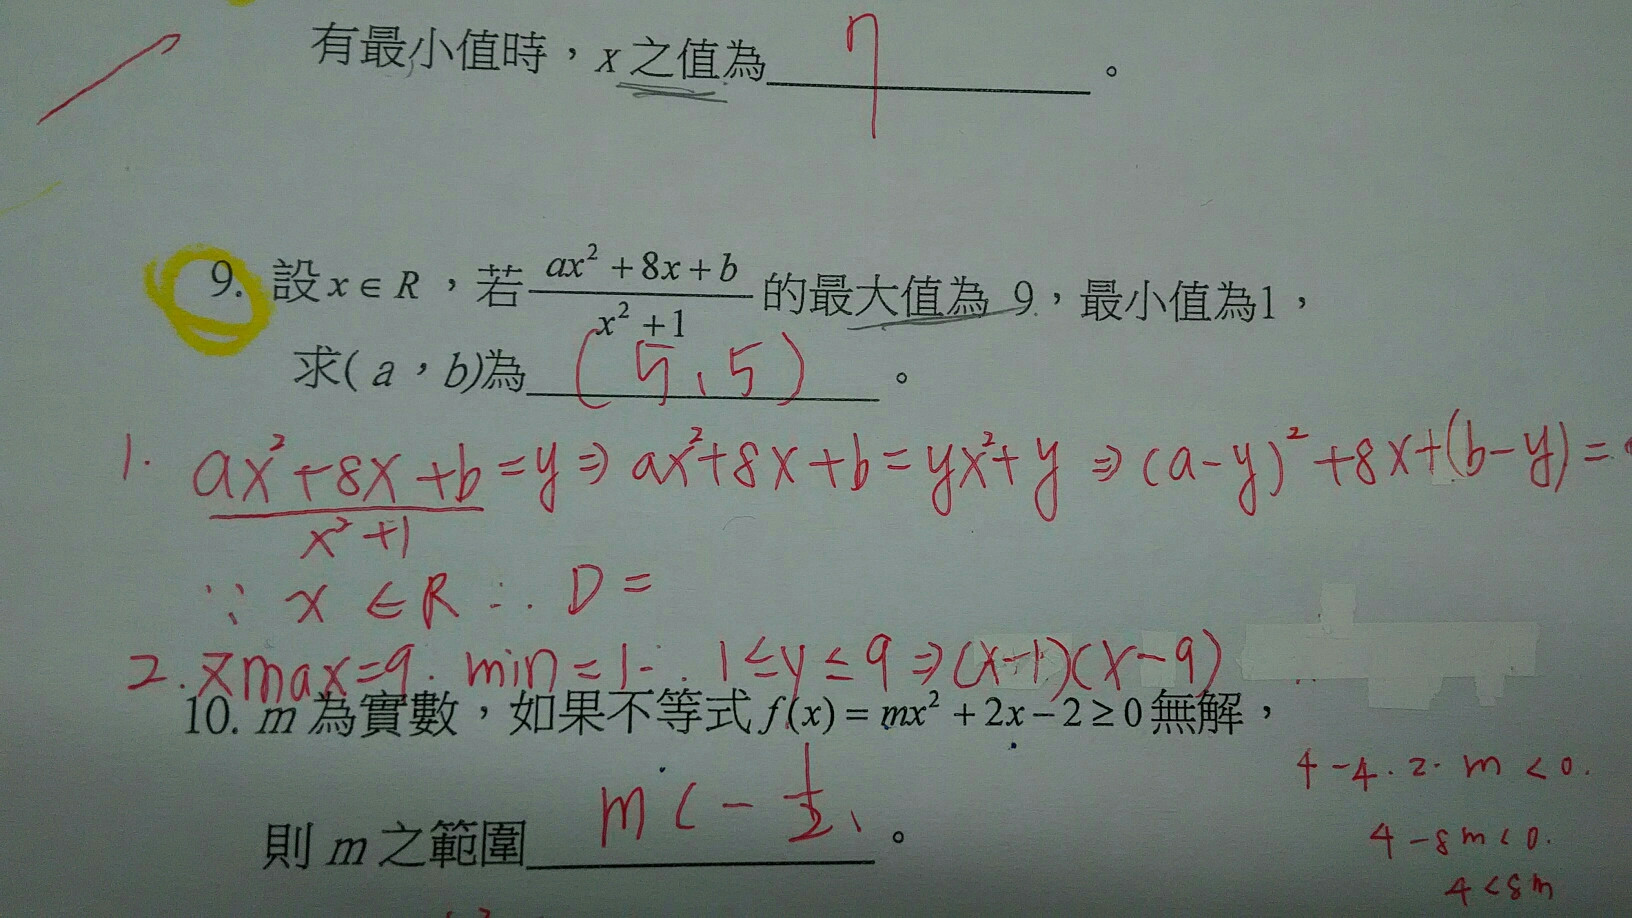 有最小值時，x之值為 7 。
9. 設x∈R，若 (ax²+8x+b)/(x²+1) 的最大值為 9，最小值為1，
求( a，b)為 (5、5) 。
1. (ax²+8x+b)/(x²+1) =y⇒ ax²+8x+b=yx²+y ⇒(a-y)²+8x+(b-y)=
∵ x∈R ∴ D=
2. 又max=9. min=1 ∴ 1≤y≤9⇒(x-1)(x-9)
10. m為實數，如果不等式f(x)=mx²+2x-2≥0無解，
4-4.2.m<0.
則 m之範圍 m<-1/2、 。
4-8m<0.
4<8m